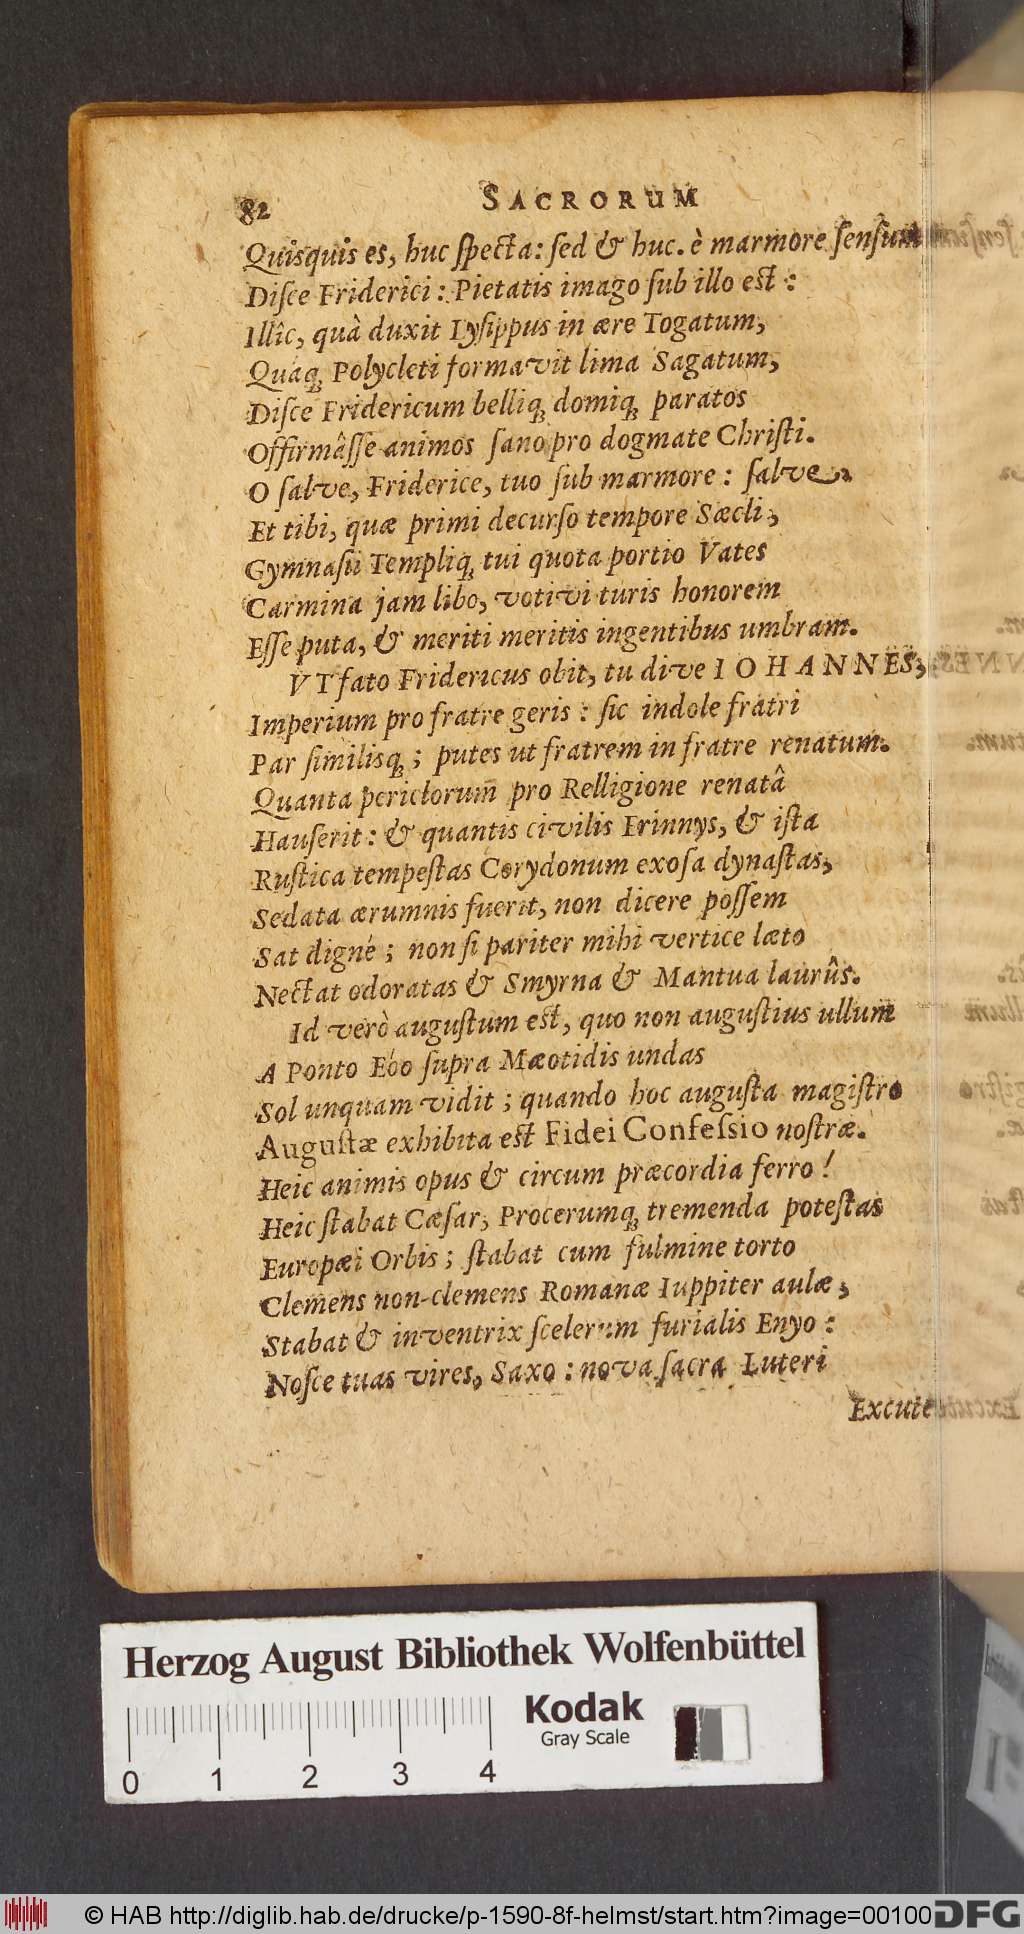 82 SACRORUM
Quisquis es, huc ſpecta: ſed & huc. è marmore ſenſum
Diſce Friderici: Pietatis imago ſub illo est:
Illîc, quà duxit Lyſippus in ære Togatum,
Quáq; Polycleti formavit lima Sagatum,
Diſce Fridericum belliq; domiq; paratos
Offirmâſſe animos ſano pro dogmate Chriſti.
O ſalve, Friderice, tuo ſub marmore: ſalve
Et tibi, quæ primi decurſo tempore Sæcli,
Gymnaſii Templiq; tui quota portio Vates
Carmina jam libo, votivi turis honorem
Eſſe puta, & meriti meritis ingentibus umbram.
VT fato Fridericus obit, tu dive IOHANNES,
Imperium pro fratre geris: ſic indole fratri
Par ſimilisq; ; putes ut fratrem in fratre renatum.
Quanta periclorum pro Relligione renatâ
Hauſerit: & quantis civilis Erinnys, & iſta
Ruſtica tempeſtas Corydonum exoſa dynaſtas,
Sedata ærumnis fuerit, non dicere poſſem
Sat dignè; non ſi pariter mihi vertice læto
Nectat odoratas & Smyrna & Mantua laurûs.
Id verò auguſtum est, quo non auguſtius ullum
A Ponto Eoo ſupra Mæotidis undas
Sol unquam vidit; quando hoc auguſta magiſtro
Auguſtæ exhibita est Fidei Confeſsio noſtræ.
Heic animis opus & circum præcordia ferro!
Heic ſtabat Cæſar, Procerumq; tremenda poteſtas
Europæi Orbis; ſtabat cum fulmine torto
Clemens non-clemens Romanæ Iuppiter aulæ,
Stabat & inventrix ſcelerum furialis Enyo:
Noſce tuas vires, Saxo: nova ſacra Luteri
Excute
Herzog August Bibliothek Wolfenbüttel
Kodak
Gray Scale
0 1 2 3 4
© HAB http://diglib.hab.de/drucke/p-1590-8f-helmst/start.htm?image=00100
DFG